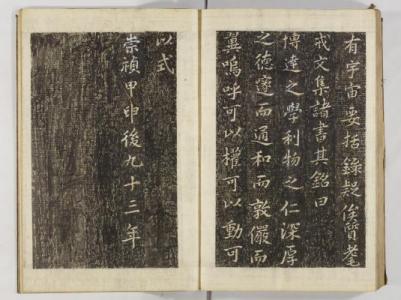 有宇宙要括錄疑俟質耄
戒文集諸書其銘曰
博達之學利物之仁深厚
之德邃而通和而敦儼而
翼嗚呼可以權可以動可
以式
崇禎甲申後九十三年